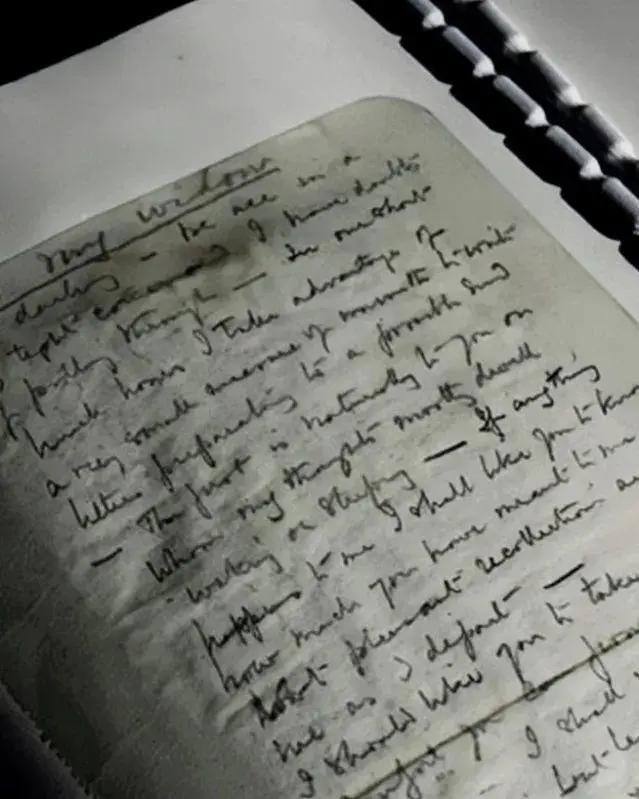 my widow
darling — we are in a
tight corner and I have doubts
of pulling through — In our short
lunch hours I take advantage of
a very small measure of warmth to write
letters preparatory to a possible end
— The first is naturally to you on
whom my thoughts mostly dwell
waking or sleeping — If anything
happens to me I shall like you to know
how much you have meant to me
that pleasant recollections
me as I depart —
I should like you to take
comfort you can from
— I shall
but